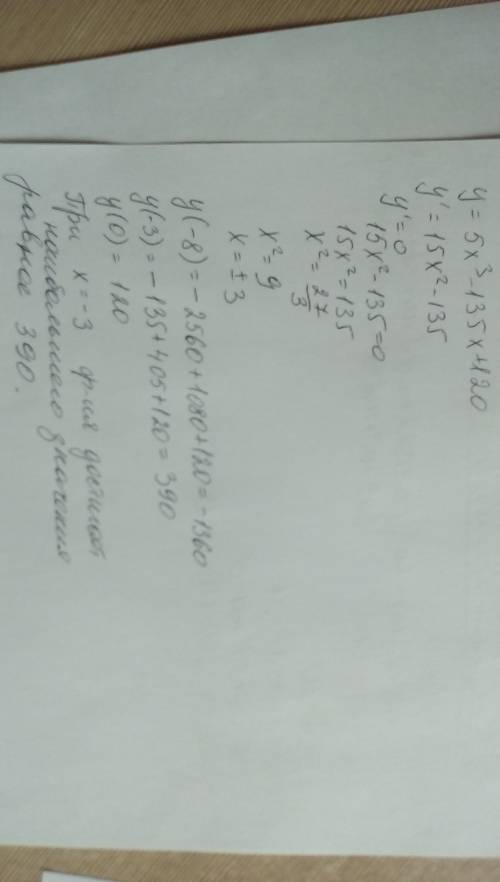 y = 5x³-135x+120
y' = 15x²-135
y'=0
15x²-135=0
15x²=135
x²= 27/3
x²=9
x=±3
y(-8) = -2560+1080+120=-1360
y(-3) = -135+405+120=390
y(0) = 120
При x=-3 ф-ция достигает
наибольшего значения
равное 390.